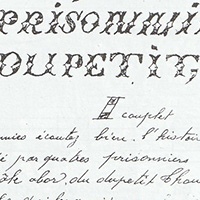 PRISONNIE
DUPETIT
II couplet
mies écoutez bien l'histoi
i par quatres prisonniers
ôte abor, du dupetit Thou